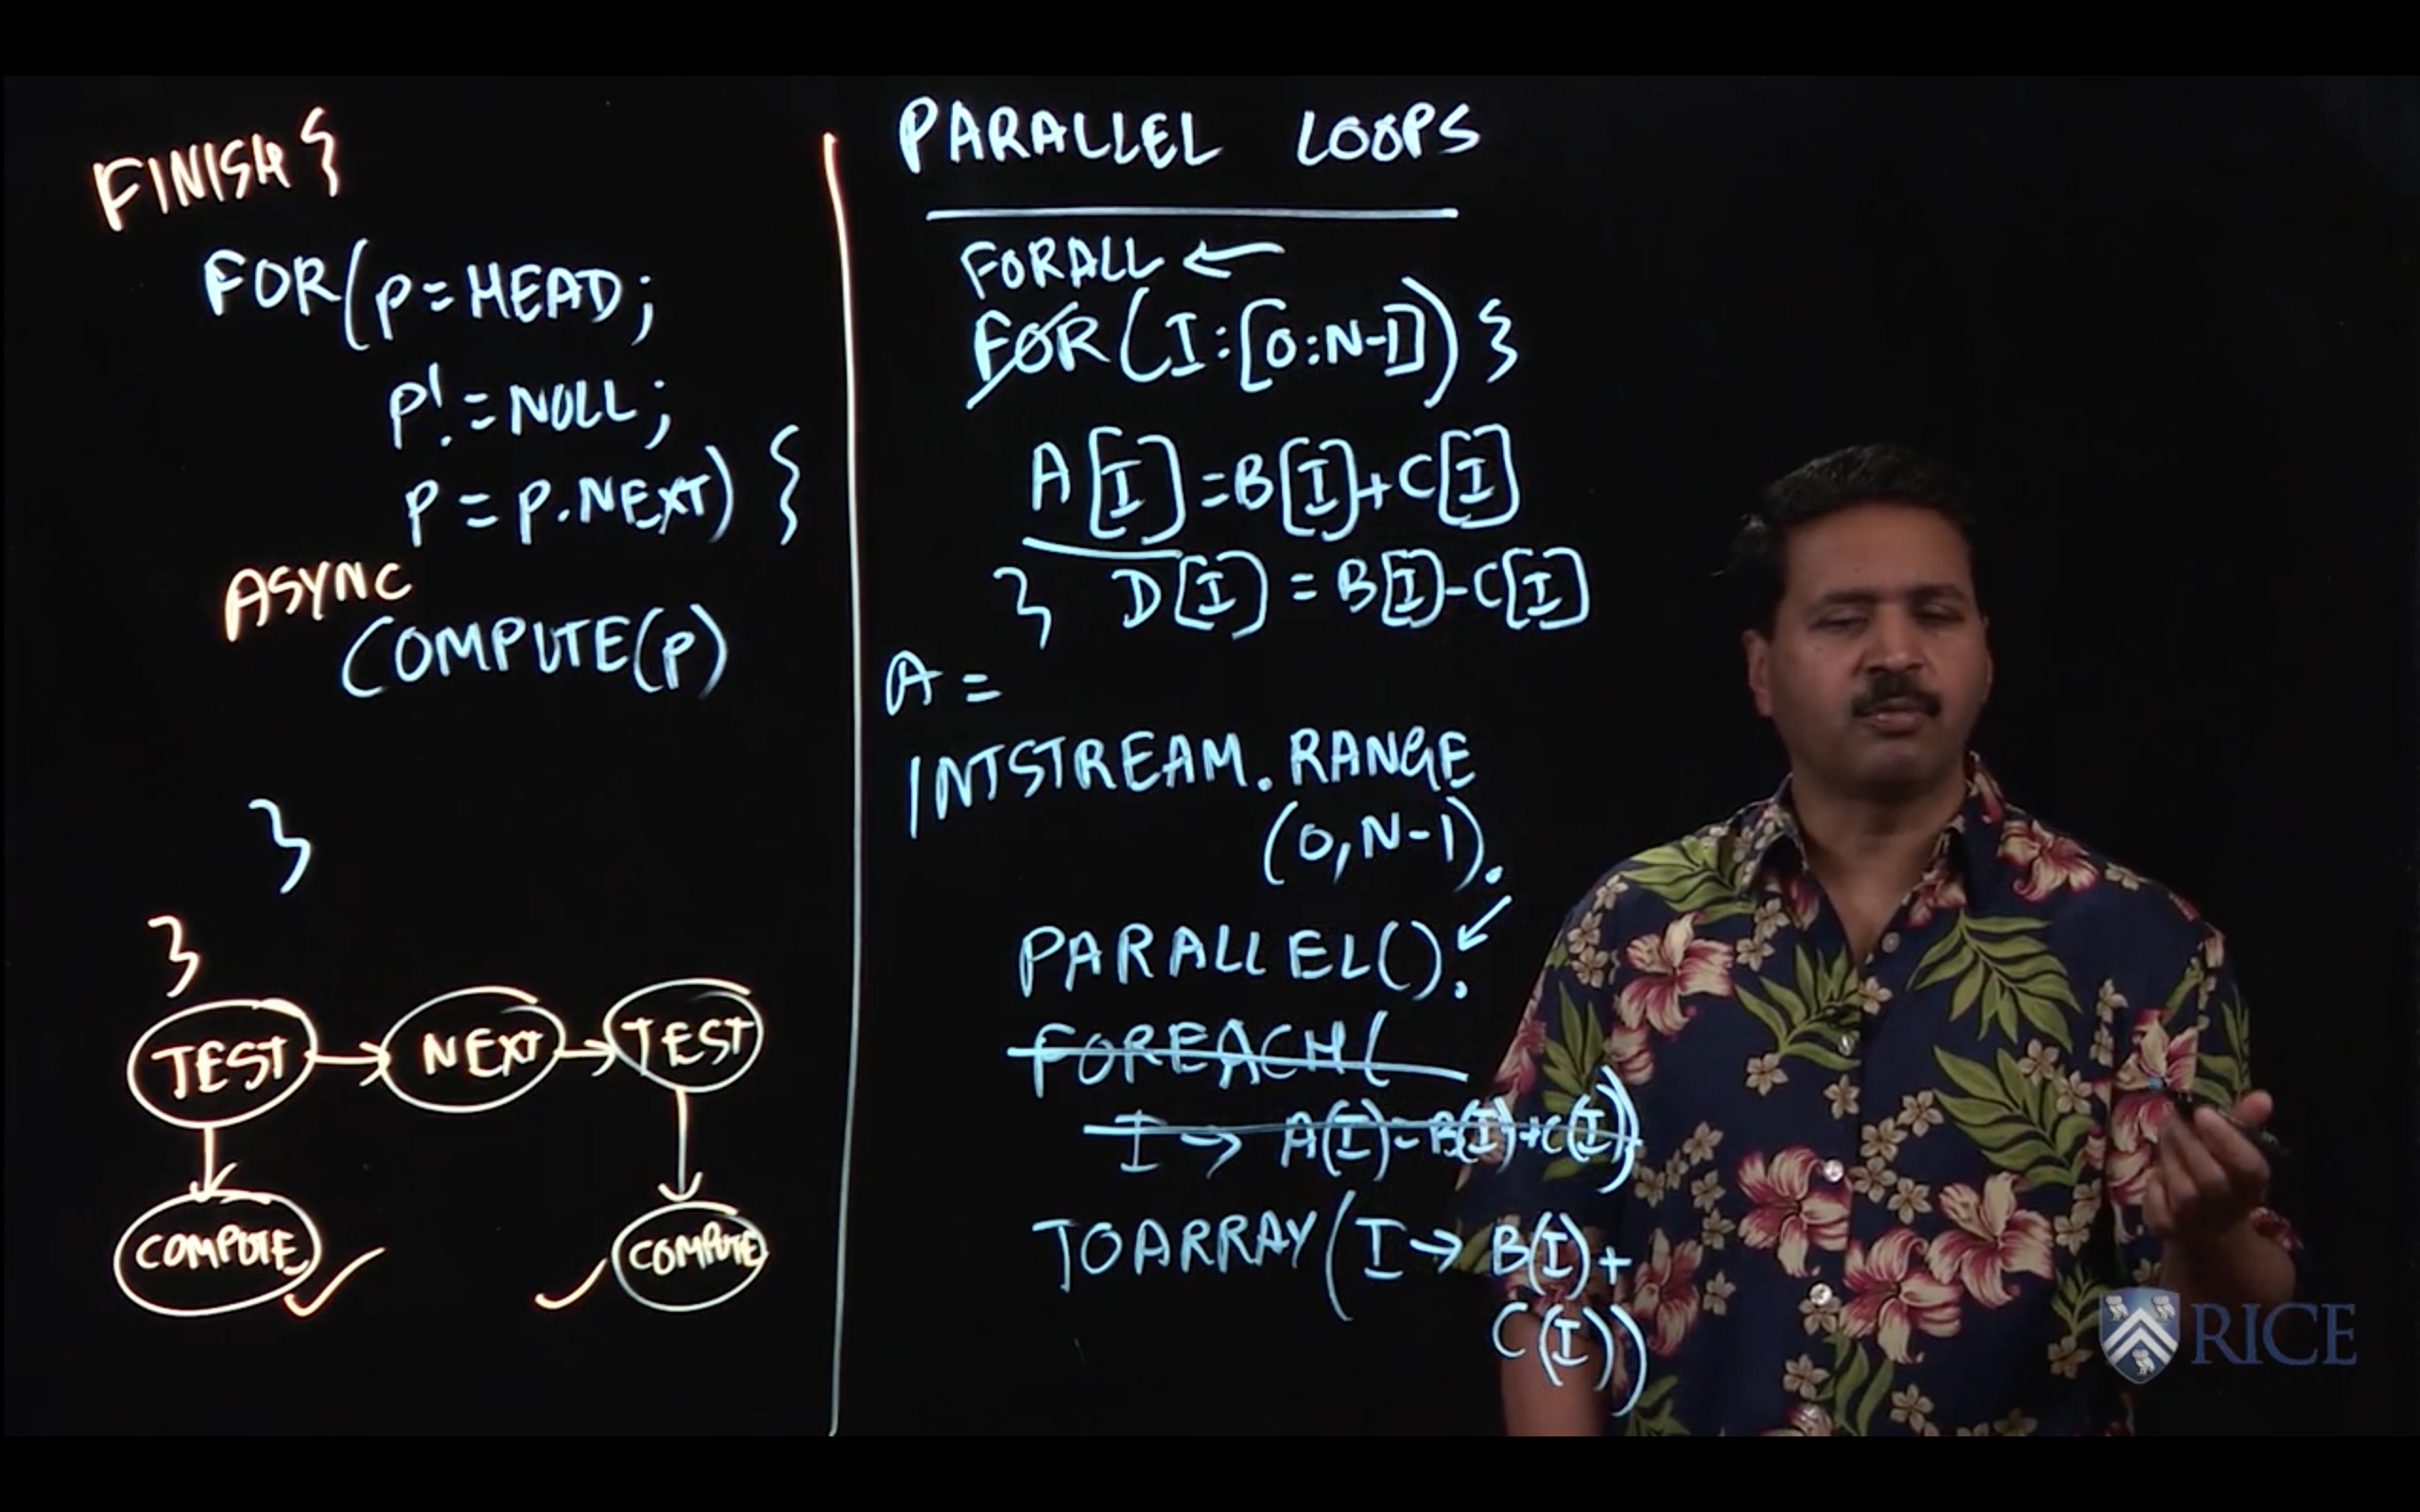 FINISH {
FOR(P=HEAD;
P!=NULL;
P=P.NEXT) {
ASYNC
COMPUTE(P)
}
}
TEST → NEXT → TEST
COMPUTE ✓ ✓ COMPUTE
PARALLEL LOOPS
FORALL ←
FOR(I:[0:N-1]) {
A[I]=B[I]+C[I]
} D[I]=B[I]-C[I]
A =
INTSTREAM.RANGE
(0,N-1).
PARALLEL().
FOREACH(
I → A(I)=B(I)+C(I))
TOARRAY(I→B(I)+
C(I))
RICE